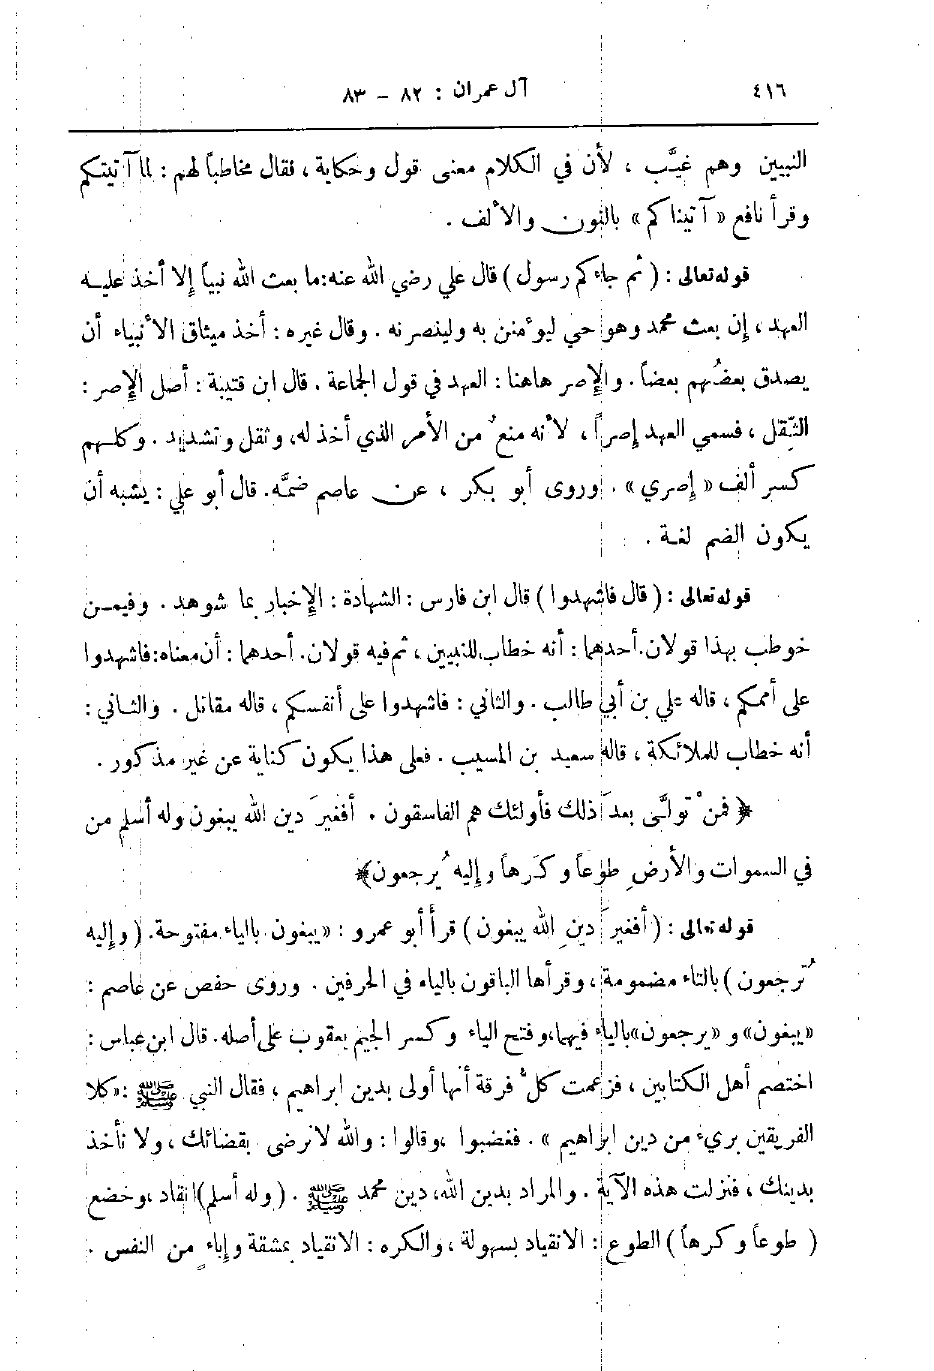 ٤١٦ آل عمران : ٨٢ – ٨٣
النبيين وهم غيَّب ، لأن في الكلام معنى قول وحكاية ، فقال مخاطباً لهم : لما آتيتكم
وقرأ نافع « آتيناكم » بالنون والألف .
قوله تعالى : ( ثم جاءكم رسول ) قال علي رضي الله عنه : ما بعث الله نبياً إلا أخذ عليه
العهد ، إن بعث محمد وهو حي ليؤمنن به ولينصرنه . وقال غيره : أخذ ميثاق الأنبياء أن
يصدق بعضُهم بعضاً . والإصر هاهنا : العهد في قول الجماعة . قال ابن قتيبة : أصل الإصر :
الثِّقل ، فسمي العهد إصراً ، لأنه منعٌ من الأمر الذي أخذ له، وثقل وتشديد . وكلهم
كسر ألف « إصري » . وروى أبو بكر ، عن عاصم ضمَّه. قال أبو علي : يشبه أن
يكون الضم لغة .
قوله تعالى : ( قال فاشهدوا ) قال ابن فارس : الشهادة : الإخبار بما شوهد . وفيمن
خوطب بهذا قولان. أحدهما : أنه خطاب للنبيين ، ثم فيه قولان. أحدهما : أن معناه: فاشهدوا
على أممكم ، قاله علي بن أبي طالب . والثاني : فاشهدوا على أنفسكم ، قاله مقاتل . والثاني :
أنه خطاب للملائكة ، قاله سعيد بن المسيب . فعلى هذا يكون كناية عن غير مذكور .
﴿ فمنْ تولَّى بعدَ ذلك فأولئك هم الفاسقون . أفغيرَ دين الله يبغون وله أسلم من
في السموات والأرضِ طوعاً وكرهاً وإليه يُرجعون﴾
قوله تعالى : ( أفغيرَ دينِ الله يبغون ) قرأ أبو عمرو : «يبغون بالياء مفتوحة. ( وإليه
تُرجعون ) بالتاء مضمومة ، وقرأها الباقون بالياء في الحرفين . وروى حفص عن عاصم :
«يبغون» و «يرجعون»بالياء فيهما،وفتح الياء وكسر الجيم يعقوب على أصله. قال ابن عباس :
اختصم أهل الكتابين ، فزعمت كلُّ فرقة أنها أولى بدين ابراهيم ، فقال النبي ﷺ : «كلا
الفريقين بريء من دين ابراهيم » . فغضبوا ،وقالوا : والله لا نرضى بقضائك ، ولا نأخذ
بدينك ، فنزلت هذه الآية . والمراد بدين الله، دين محمد ﷺ . ( وله أسلم) انقاد ،وخضع
( طوعاً وكرهاً ) الطوع : الانقياد بسهولة ، والكره : الانقياد بمشقة وإباءٍ من النفس .